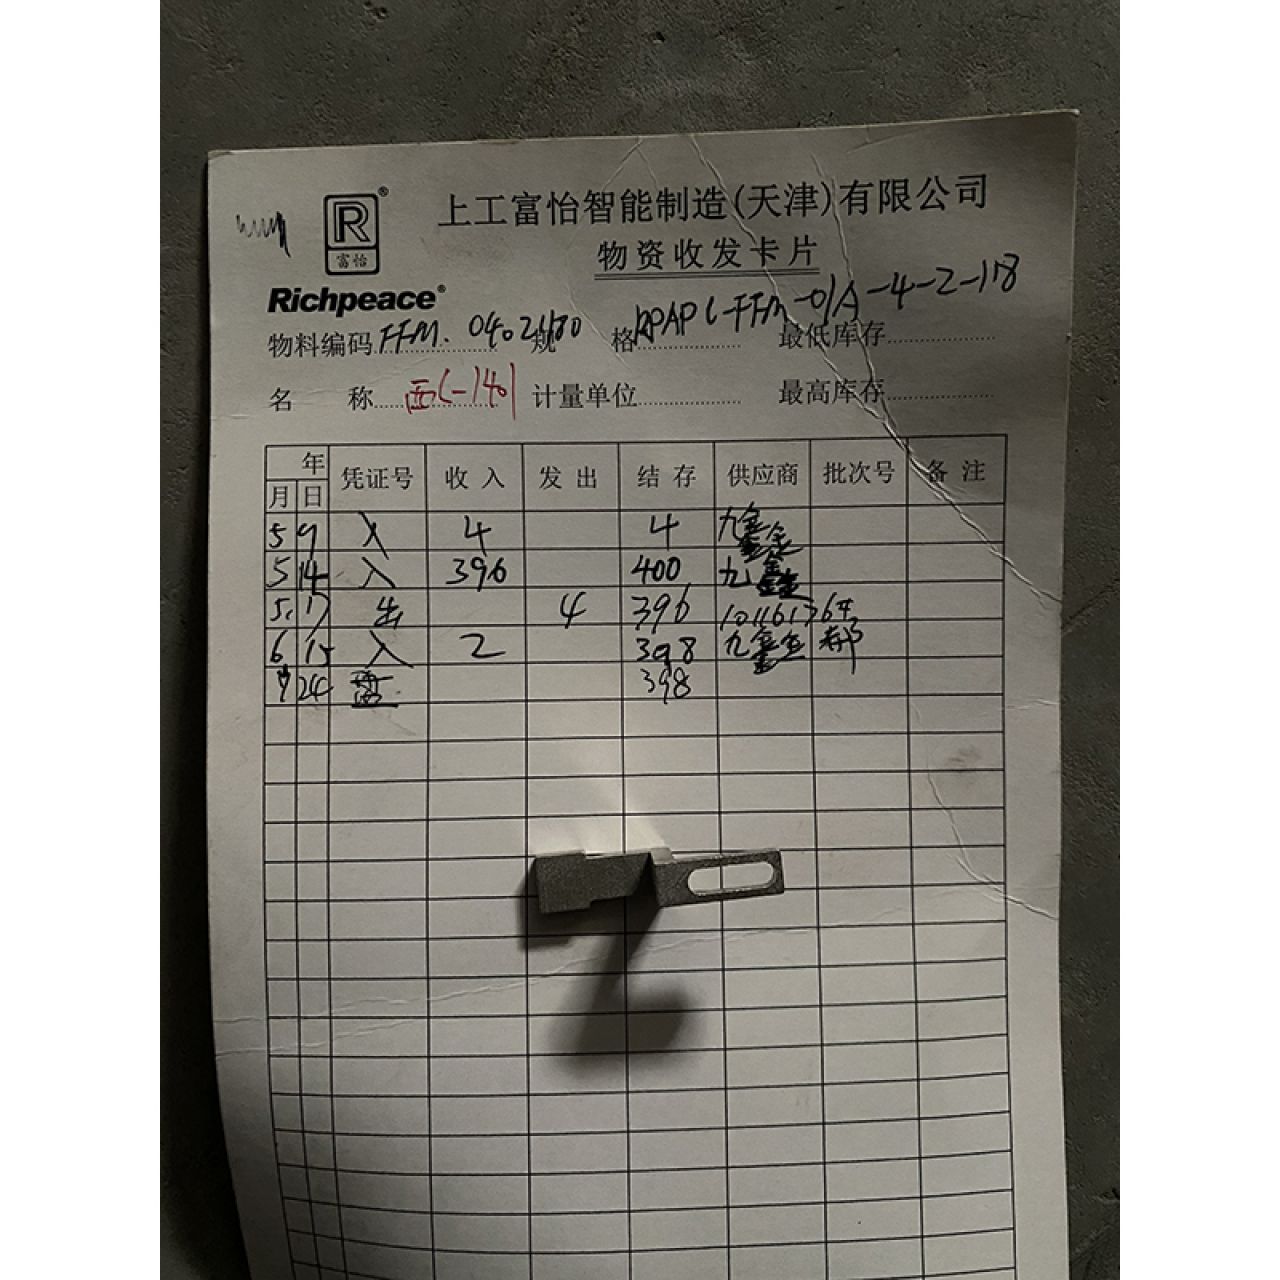 上工富怡智能制造(天津)有限公司
R®
富怡
物资收发卡片
Richpeace®
物料编码 FFM.0402480 规格 RPAPL-FFM-01A-4-2-118 最低库存
名称 西(-140) 计量单位 最高库存
年 月 日 凭证号 收入 发出 结存 供应商 批次号 备注
5 9 入 4 4 九鑫鑫
5 14 入 396 400 九鑫鑫
5. 17 出 4 396
6 15 入 2 398 九鑫鑫
24 盘 398